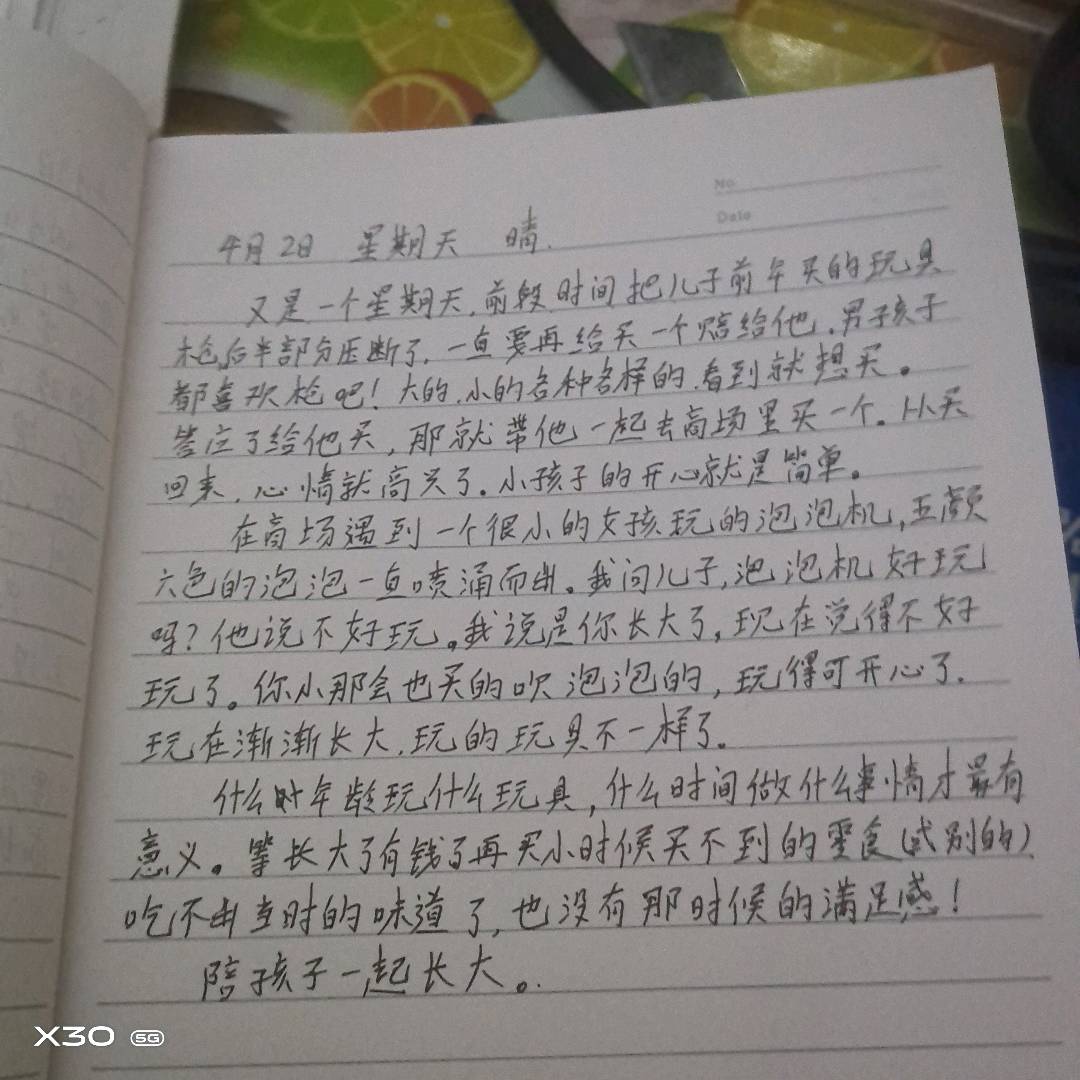 No
Date
4月2日 星期天 晴.
又是一个星期天,前段时间把儿子前年买的玩具
枪后半部分压断了,一直要再给买一个赔给他,男子孩子
都喜欢枪吧!大的,小的各种各样的,看到就想买。
答应了给他买,那就带他一起去商场里买一个。从买
回来,心情就高兴了。小孩子的开心就是简单。
在商场遇到一个很小的女孩玩的泡泡机,五颜
六色的泡泡一直喷涌而出。我问儿子,泡泡机好玩
吗?他说不好玩。我说是你长大了,现在觉得不好
玩了。你小那会也买的吹泡泡的,玩得可开心了.
玩在渐渐长大,玩的玩具不一样了。
什么时年龄玩什么玩具,什么时间做什么事情才最有
意义。等长大了有钱了再买小时候买不到的零食(或别的)
吃不出当时的味道了,也没有那时候的满足感!
陪孩子一起长大。
X30 5G